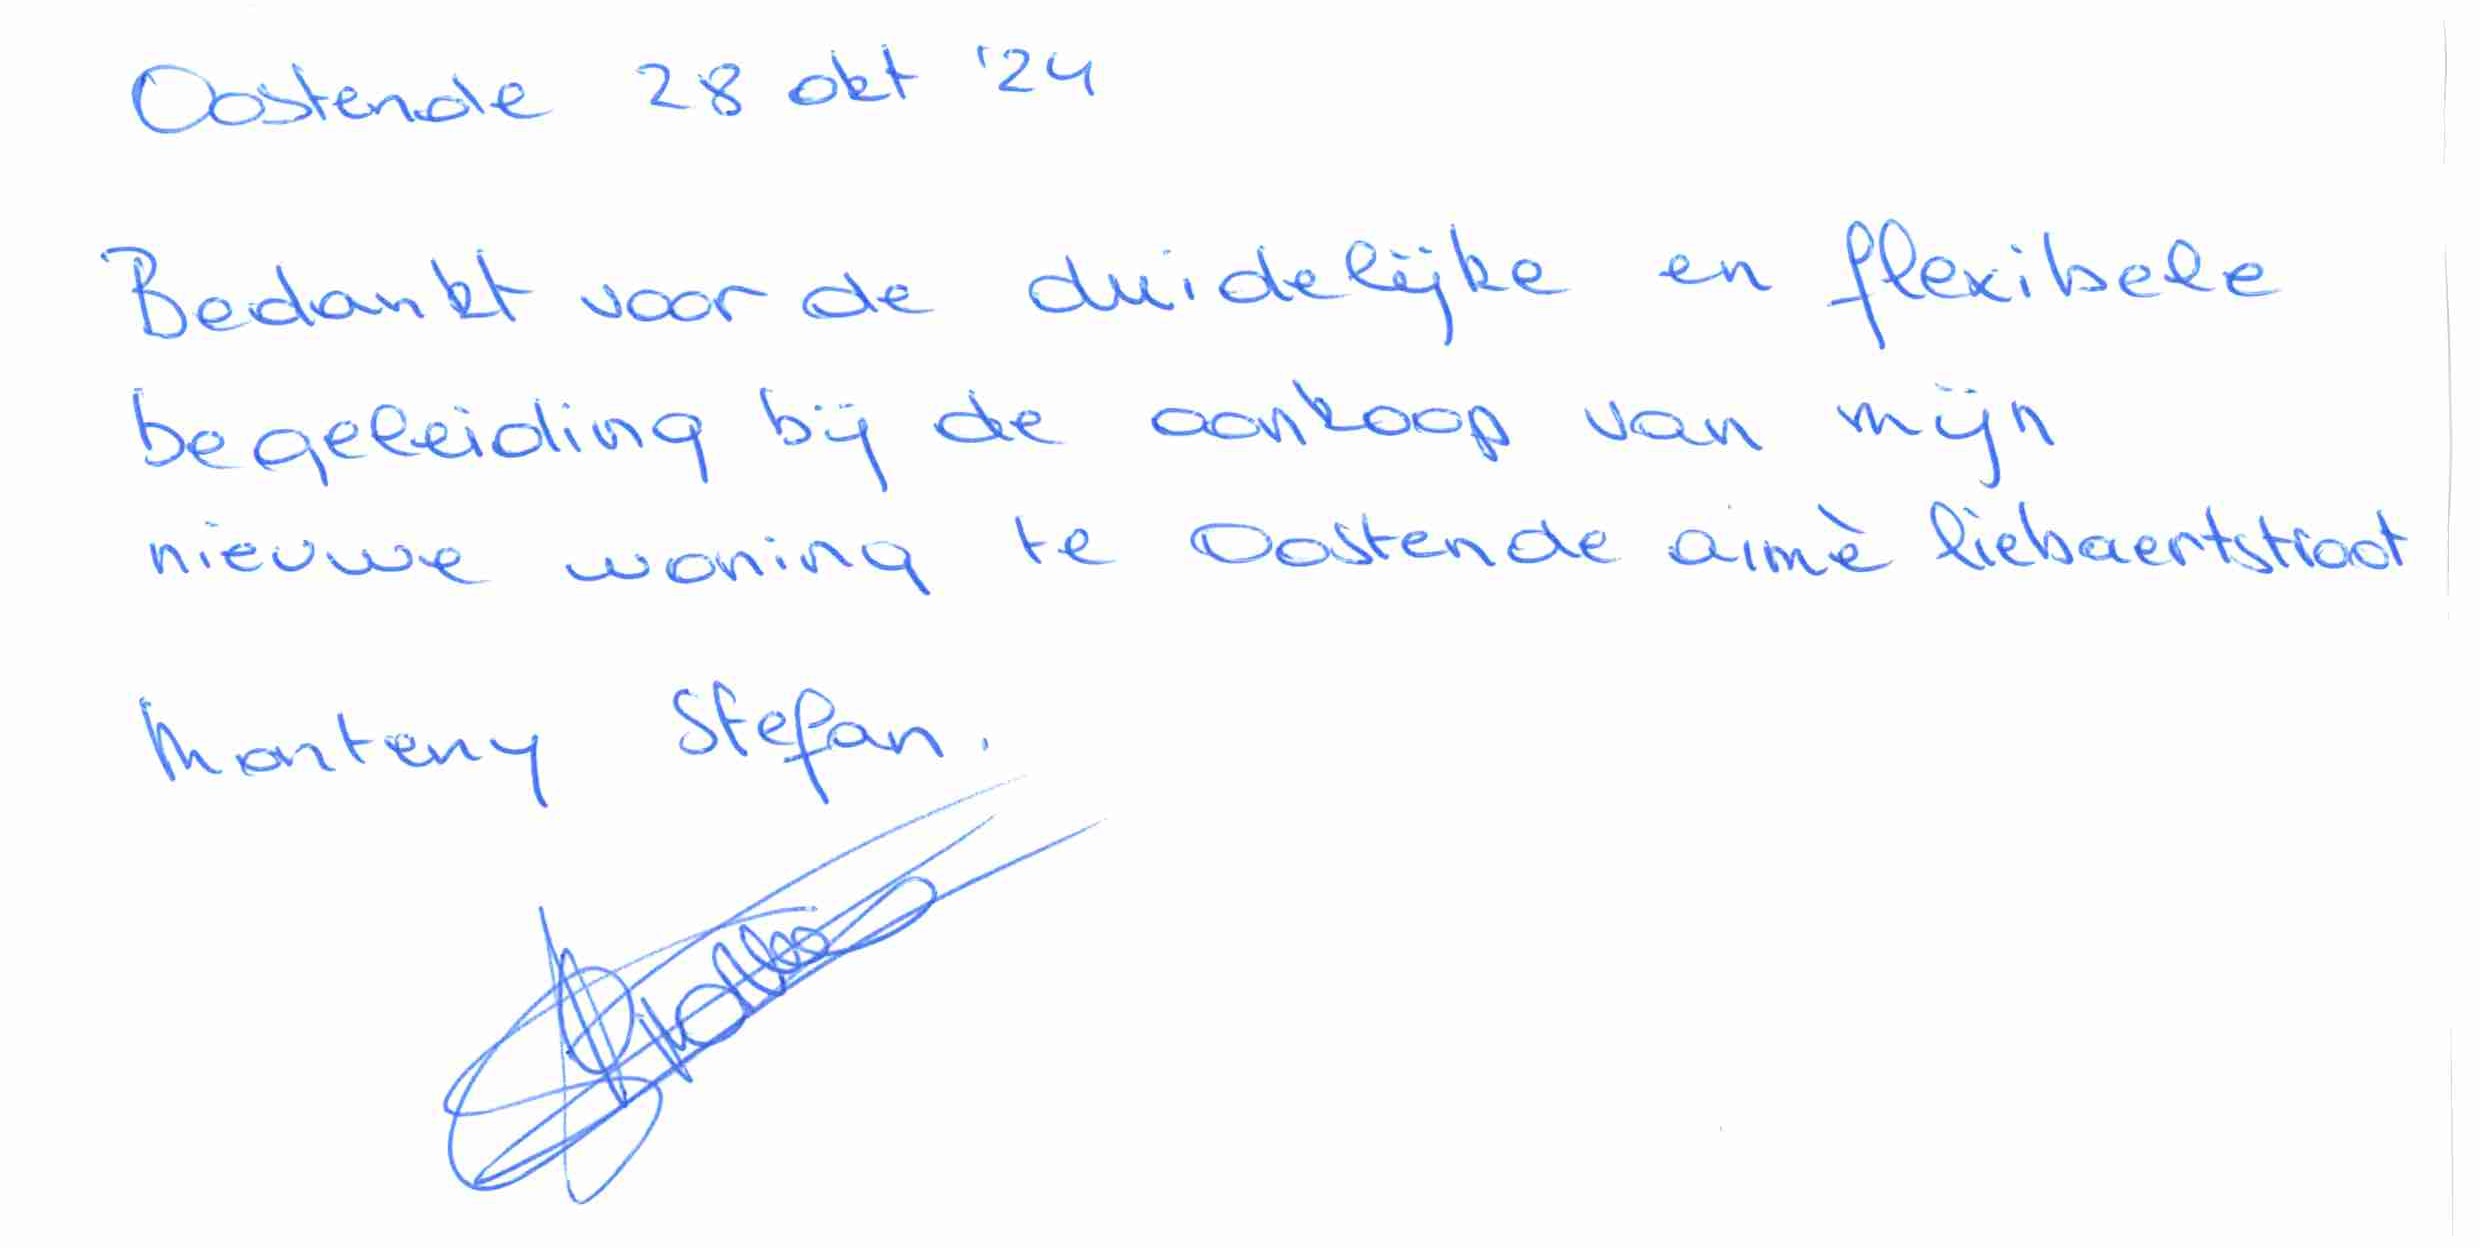 Oostende 28 okt '24
Bedankt voor de duidelijke en flexibele
begeleiding bij de aankoop van mijn
nieuwe woning te Oostende aimè liebaertstraat
Monteny Stefan.